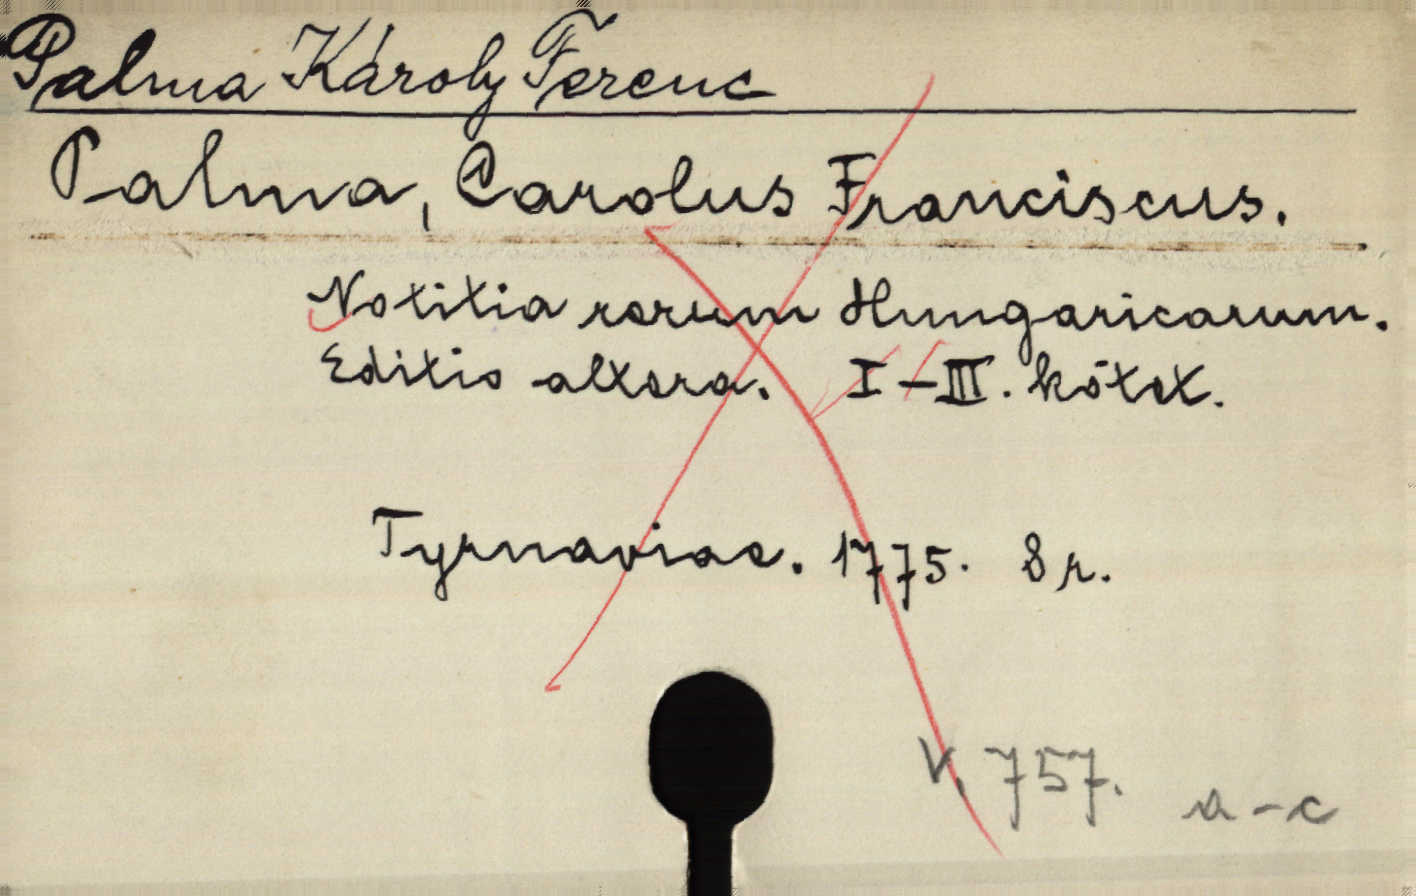 Palma Károly Ferenc
Palma, Carolus Franciscus.
Notitia rerum Hungaricarum.
Editio altera. I-III. kötet.
Tyrnaviae. 1775. 8r.
V. 757. a-c